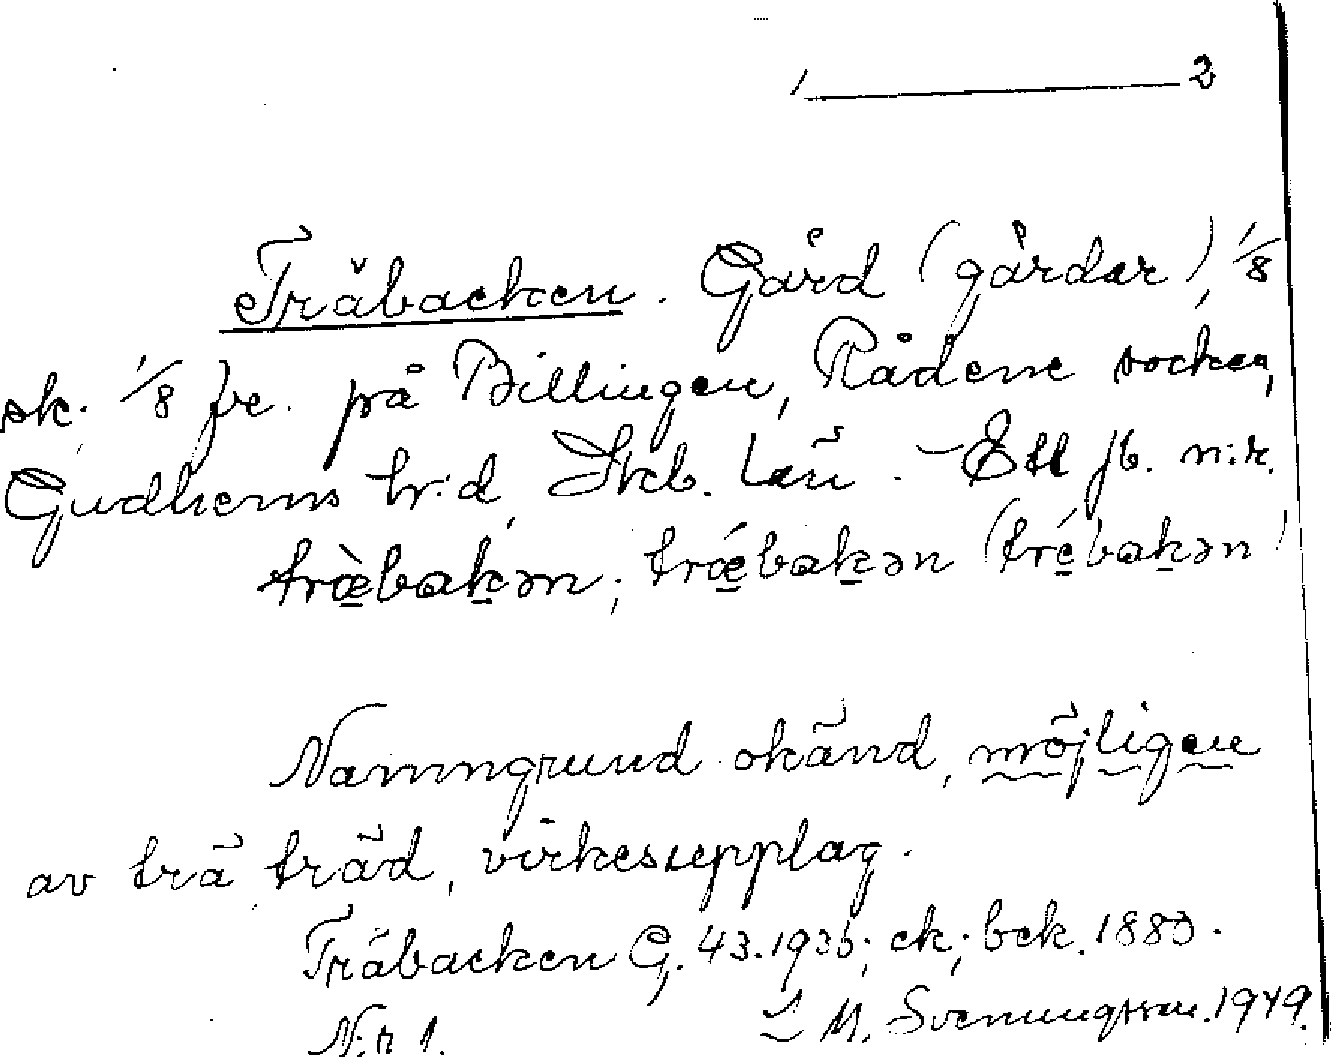 1 2
Träbacken. Gård (gårdar), 1/8
sk. 1/8 fr. på Billingen, Rådene socken,
Gudhems h:d, Skb. län. - Ett jb. n:r.
træ̀bakən; trǽbakən (trébakən)
Namngrund okänd, möjligen
av trä träd, virkesupplag.
Träbacken G. 43. 1936; ek; bek. 1883.
N:r 1. L M. Svenungsson. 1949.